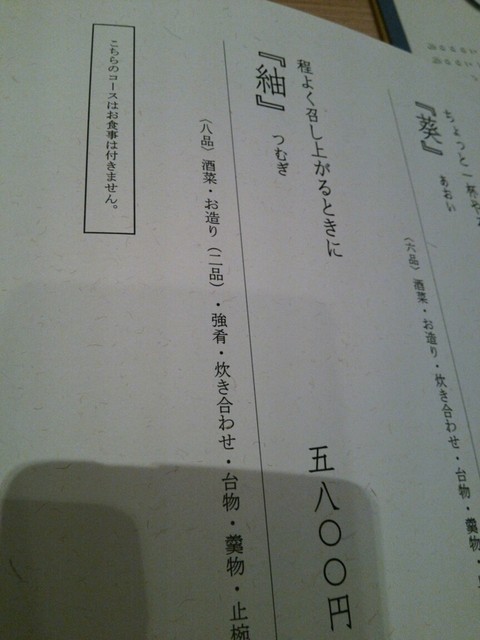 ちょっと一杯や
『葵』 あおい
(六品) 酒菜・お造り・炊き合わせ・台物・羹物・
程よく召し上がるときに
『紬』 つむぎ
五八〇〇円
(八品) 酒菜・お造り(二品)・強肴・炊き合わせ・台物・羹物・止椀
こちらのコースはお食事は付きません。